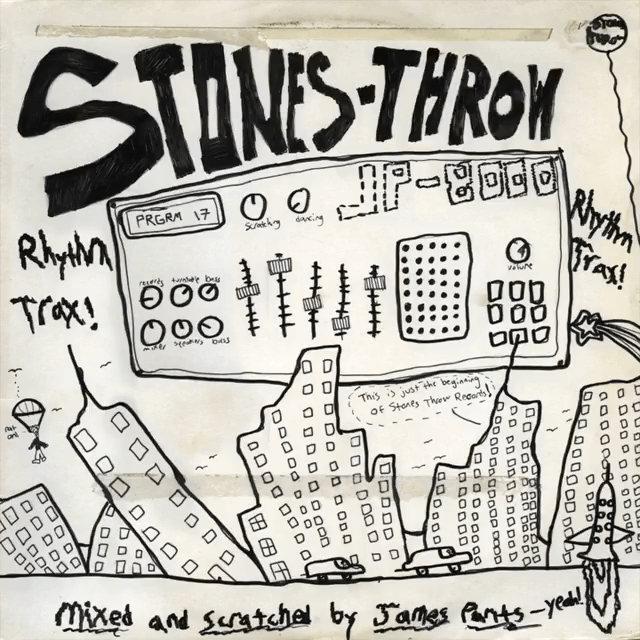 Stones Throw
STONES-THROW
PRGRM 17
scratching
dancing
JP-8000
Rhythm
Trax!
Rhythm
Trax!
records turntable bass
mixer speakers bass
volume
This is just the beginning
of Stones Throw Records!
not
one
Mixed and scratched by James Pants-yeah!